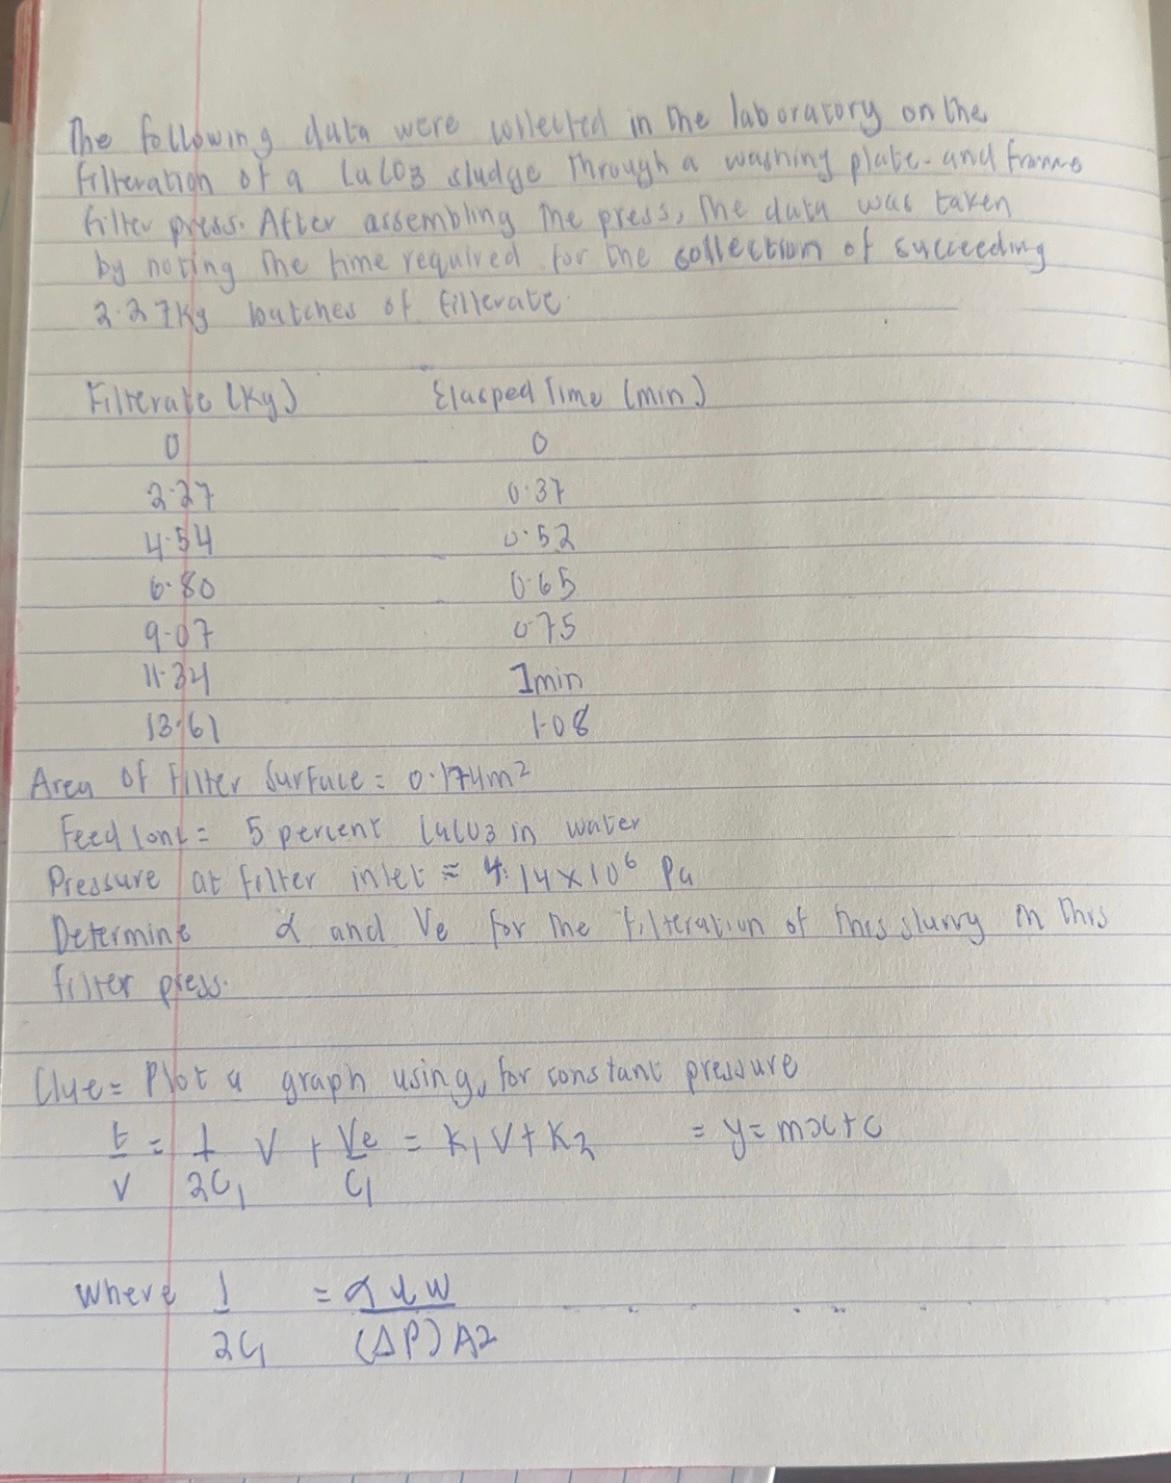 The following data were collected in the laboratory on the
filteration of a CaCO3 sludge through a washing plate-and frame
filter press. After assembling the press, the data was taken
by noting the time required for the collection of succeeding
2.27kg batches of filterate.
Filterate (kg) Elasped Time (min)
0 0
2.27 0.37
4.54 0.52
6.80 0.65
9.07 0.75
11.34 1min
13.61 1.08
Area of filter surface = 0.174m²
Feed conc = 5 percent CaCO3 in water
Pressure at filter inlet = 4.14x10⁶ Pa
Determine α and Ve for the filteration of this slurry in this
filter press.
Clue = Plot a graph using, for constant pressure
t/V = 1/2C₁ V + Ve/C₁ = K₁V + K₂ = y = mx + c
Where 1/2C₁ = αμw/(ΔP)A2